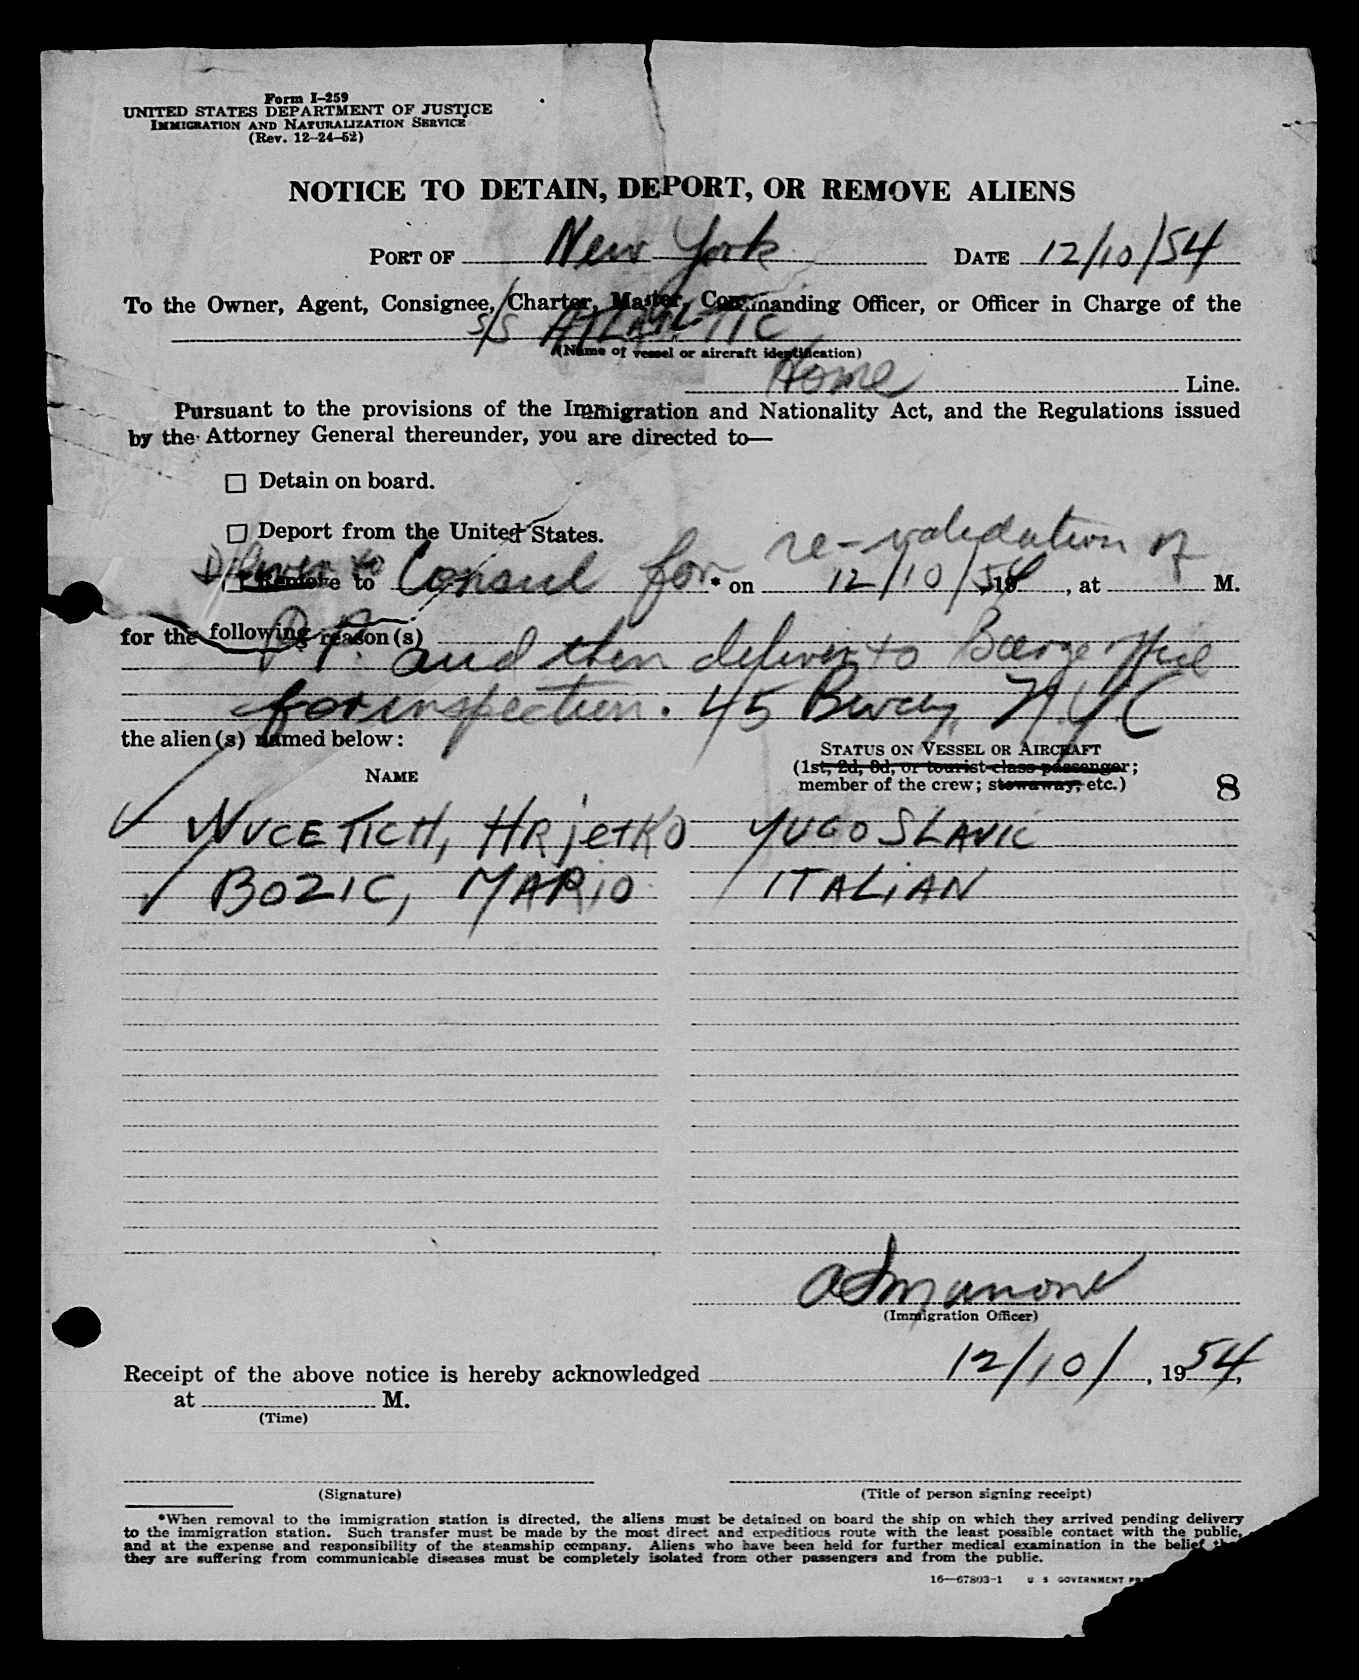 Form I-259
UNITED STATES DEPARTMENT OF JUSTICE
IMMIGRATION AND NATURALIZATION SERVICE
(Rev. 12-24-52)
NOTICE TO DETAIN, DEPORT, OR REMOVE ALIENS
PORT OF New York DATE 12/10/54
To the Owner, Agent, Consignee, Charter, Master, Commanding Officer, or Officer in Charge of the
S/S ATLANTIC
(Name of vessel or aircraft identification)
Home Line.
Pursuant to the provisions of the Immigration and Nationality Act, and the Regulations issued
by the Attorney General thereunder, you are directed to—
☐ Detain on board.
☐ Deport from the United States.
Deliver to
☐ Remove to Consul for re-validation of * on 12/10/54, 19, at M.
for the following reason(s)
P.P. and then deliver to Barge Office
for inspection. 45 Bway, N.Y.C
the alien(s) named below:
NAME
STATUS ON VESSEL OR AIRCRAFT
(1st, 2d, 3d, or tourist class passenger;
member of the crew; stowaway, etc.)
8
✓ VUCETICH, HRjetKO YUGOSLAVIC
✓ BOZIC, MARIO ITALIAN
(Immigration Officer)
Receipt of the above notice is hereby acknowledged 12/10/, 1954,
at M.
(Time)
(Signature) (Title of person signing receipt)
*When removal to the immigration station is directed, the aliens must be detained on board the ship on which they arrived pending delivery
to the immigration station. Such transfer must be made by the most direct and expeditious route with the least possible contact with the public,
and at the expense and responsibility of the steamship company. Aliens who have been held for further medical examination in the belief
they are suffering from communicable diseases must be completely isolated from other passengers and from the public.
16—67803-1 U S GOVERNMENT